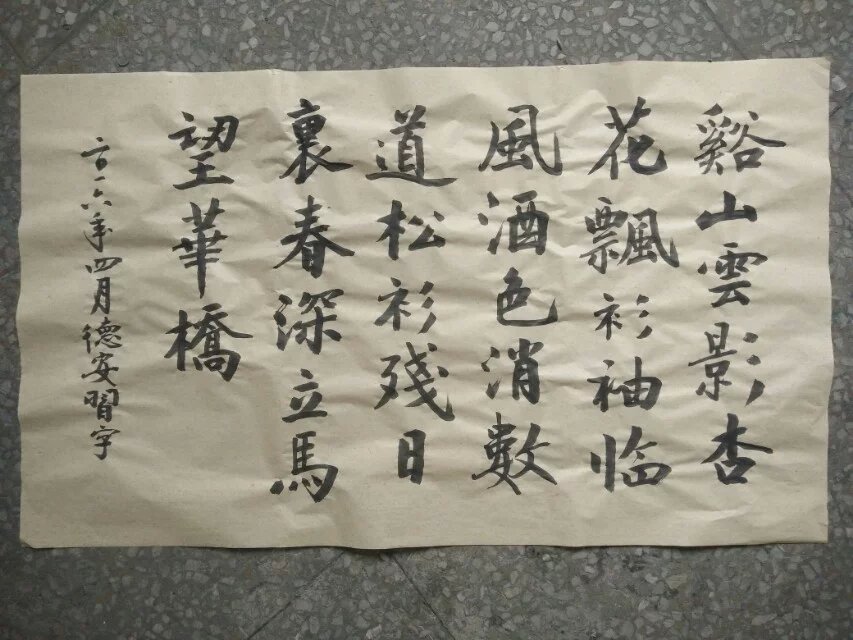 谿山雲影杏
花飄衫袖临
風酒色消數
道松衫残日
裏春深立馬
望華橋
六年四月德安習字